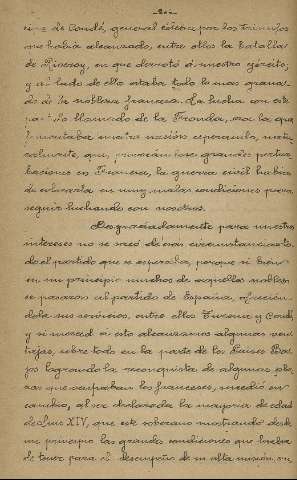 cipe de Condé, general célebre por los triunfos
que había alcanzado, entre ellos la batalla
de Rocroy, en que derrotó á nuestro ejército;
y al lado de ello estaba todo lo mas grana-
do de la nobleza francesa. La lucha con este
partido llamado de la Fronda, era la que
fomentaba nuestra nación esperando, natu-
ralmente, que, provocándose grandes pertur-
baciones en Francia, la guerra civil había
de colocarla en muy malas condiciones para
seguir luchando con nosotros.
Desgraciadamente para nuestros
intereses no se sacó de esas circunstancias to-
do el partido que se esperaba, porque si bien
en un principio muchos de aquellos nobles
se pasaron al partido de España, ofrecién-
dole sus servicios, entre ellos Turena y Condé,
y si merced á esto alcanzamos algunas ven-
tajas, sobre todo en la parte de los Países Ba-
jos logrando la reconquista de algunas pla-
zas que ocupaban los franceses, sucedió en
cambio, al ser declarada la mayoría de edad
de Luis XIV, que este soberano mostrando desde
un principio las grandes condiciones que había
de tener para el desempeño de su alta misión, su